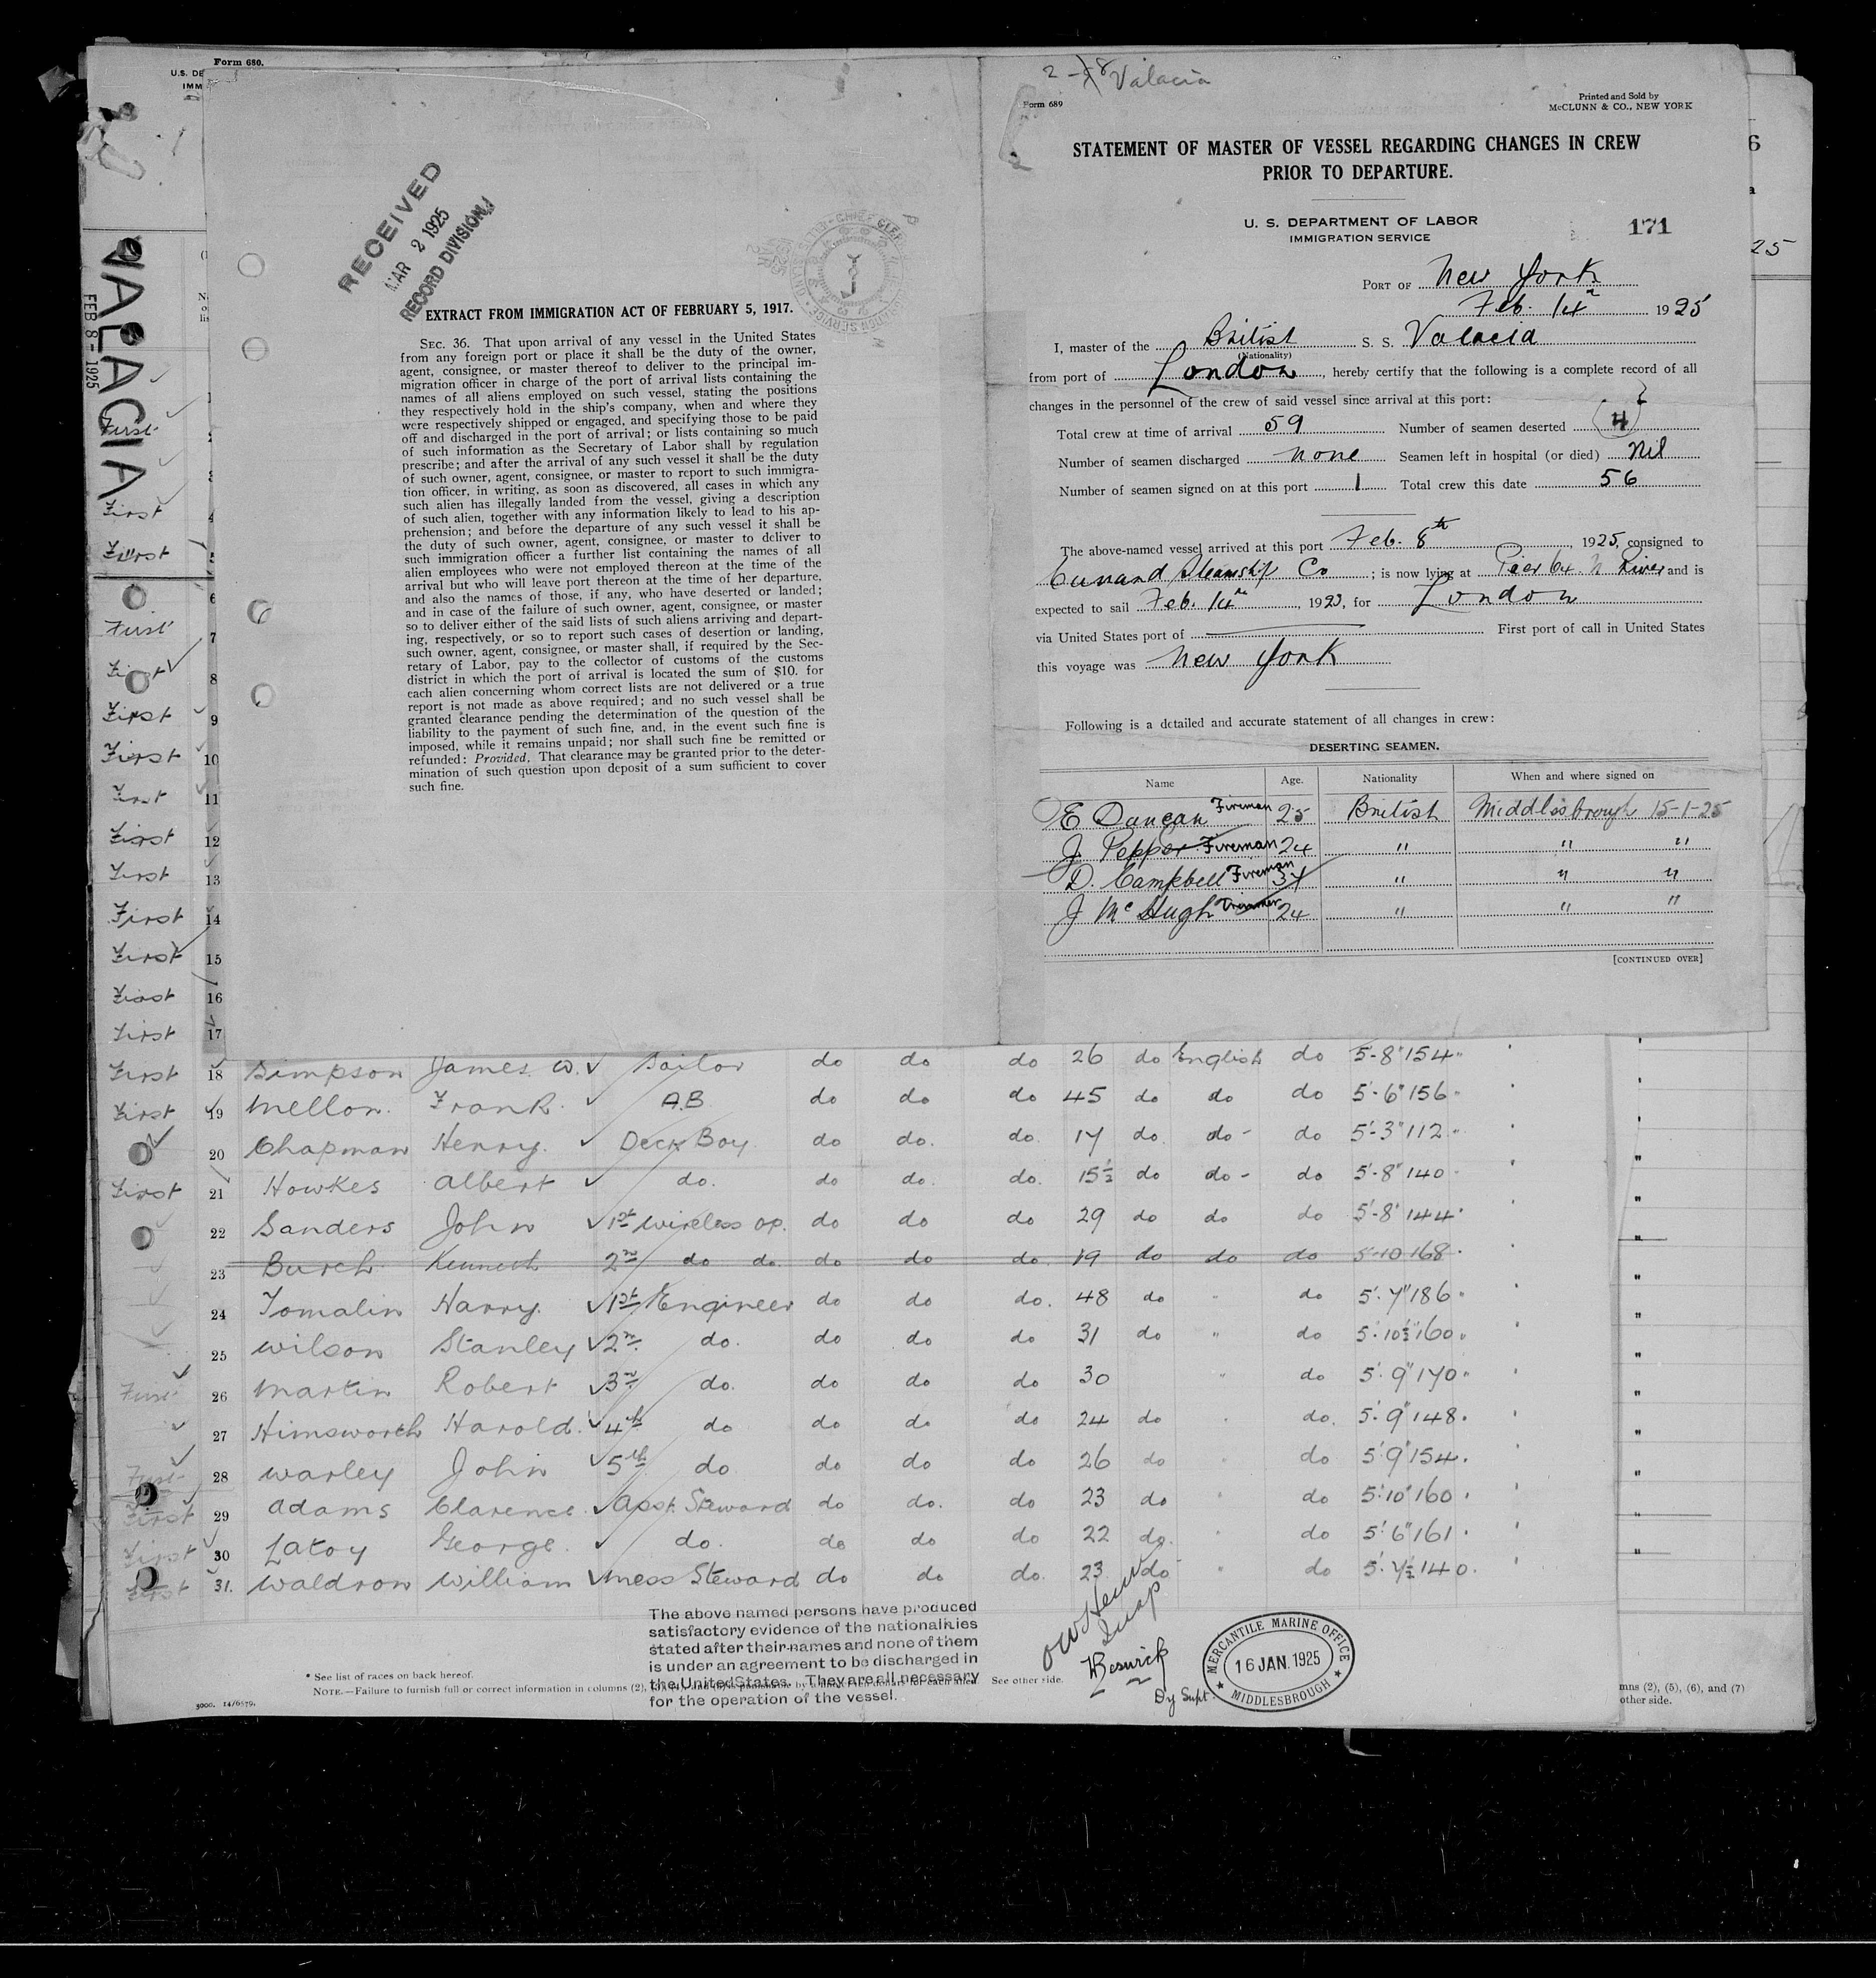 Form 680.
U.S. DE
IMM
VALACIA
FEB 8 - 1925
RECEIVED
MAR 2 1925
RECORD DIVISION
EXTRACT FROM IMMIGRATION ACT OF FEBRUARY 5, 1917.
SEC. 36. That upon arrival of any vessel in the United States
from any foreign port or place it shall be the duty of the owner,
agent, consignee, or master thereof to deliver to the principal im-
migration officer in charge of the port of arrival lists containing the
names of all aliens employed on such vessel, stating the positions
they respectively hold in the ship's company, when and where they
were respectively shipped or engaged, and specifying those to be paid
off and discharged in the port of arrival; or lists containing so much
of such information as the Secretary of Labor shall by regulation
prescribe; and after the arrival of any such vessel it shall be the duty
of such owner, agent, consignee, or master to report to such immigra-
tion officer, in writing, as soon as discovered, all cases in which any
such alien has illegally landed from the vessel, giving a description
of such alien, together with any information likely to lead to his ap-
prehension; and before the departure of any such vessel it shall be
the duty of such owner, agent, consignee, or master to deliver to
such immigration officer a further list containing the names of all
alien employees who were not employed thereon at the time of the
arrival but who will leave port thereon at the time of her departure,
and also the names of those, if any, who have deserted or landed;
and in case of the failure of such owner, agent, consignee, or master
so to deliver either of the said lists of such aliens arriving and depart-
ing, respectively, or so to report such cases of desertion or landing,
such owner, agent, consignee, or master shall, if required by the Sec-
retary of Labor, pay to the collector of customs of the customs
district in which the port of arrival is located the sum of $10. for
each alien concerning whom correct lists are not delivered or a true
report is not made as above required; and no such vessel shall be
granted clearance pending the determination of the question of the
liability to the payment of such fine, and, in the event such fine is
imposed, while it remains unpaid; nor shall such fine be remitted or
refunded: Provided, That clearance may be granted prior to the deter-
mination of such question upon deposit of a sum sufficient to cover
such fine.
Valacia
Form 689
Printed and Sold by
McCLUNN & CO., NEW YORK
STATEMENT OF MASTER OF VESSEL REGARDING CHANGES IN CREW
PRIOR TO DEPARTURE.
U. S. DEPARTMENT OF LABOR
IMMIGRATION SERVICE
171
PORT OF New York
Feb. 14th 1925
I, master of the British S. S. Valacia
(Nationality)
from port of London, hereby certify that the following is a complete record of all
changes in the personnel of the crew of said vessel since arrival at this port:
Total crew at time of arrival 59 Number of seamen deserted 4
Number of seamen discharged none Seamen left in hospital (or died) Nil
Number of seamen signed on at this port 1 Total crew this date 56
The above-named vessel arrived at this port Feb. 8th, 1925, consigned to
Cunard Steamship Co; is now lying at Pier 64 N River and is
expected to sail Feb. 14th, 1925, for London
via United States port of First port of call in United States
this voyage was New York
Following is a detailed and accurate statement of all changes in crew:
DESERTING SEAMEN.
Name Age. Nationality When and where signed on
E Duncan Fireman 25 British Middlesbrough 15-1-25
J. Pepper Fireman 24 " " "
D. Campbell Fireman 31 " " "
J McHugh Trimmer 24 " " "
[CONTINUED OVER]
First 18 Simpson James W. Sailor do do do 26 do English do 5-8" 154
First 19 Mellon. Frank. A.B do do do 45 do do do 5-6" 156
20 Chapman Henry. Deck Boy. do do. do. 17 do. do - do 5'-3" 112
First 21 Howkes Albert do. do do. do. 15½ do do - do 5'-8" 140
22 Sanders John 1st Wireless op. do do do 29 do do do 5'-8" 144
23 Burch Kenneth 2nd do do. do do do. 19 do do do 5-10 168
24 Tomalin Harry. 1st Engineer do do do. 48 do " do 5'.7" 186
25 Wilson Stanley 2nd. do. do do do 31 do " do 5'.10½" 160
First 26 Martin Robert 3rd. do. do do do 30 " do 5'.9" 170
27 Himsworth Harold. 4th do do do do 24 do " do. 5'.9" 148
First 28 Warley John 5th do do do do 26 do " do 5'.9" 154
First 29 Adams Clarence. Asst. Steward do do. do 23 do " do 5'.10" 160
First 30 Latoy George. do. do do do 22 do. " do 5'.6" 161
First 31. Waldron William Mess Steward do do do. 23 do " do 5'.7½ 140.
The above named persons have produced
satisfactory evidence of the nationalities
stated after their names and none of them
is under an agreement to be discharged in
the United States. They are all necessary
for the operation of the vessel.
* See list of races on back hereof.
NOTE.—Failure to furnish full or correct information in columns (2),
See other side.
3000. 14/6579.
Beswick
Dy Supt.
MERCANTILE MARINE OFFICE
16 JAN. 1925
MIDDLESBROUGH
mns (2), (5), (6), and (7)
other side.